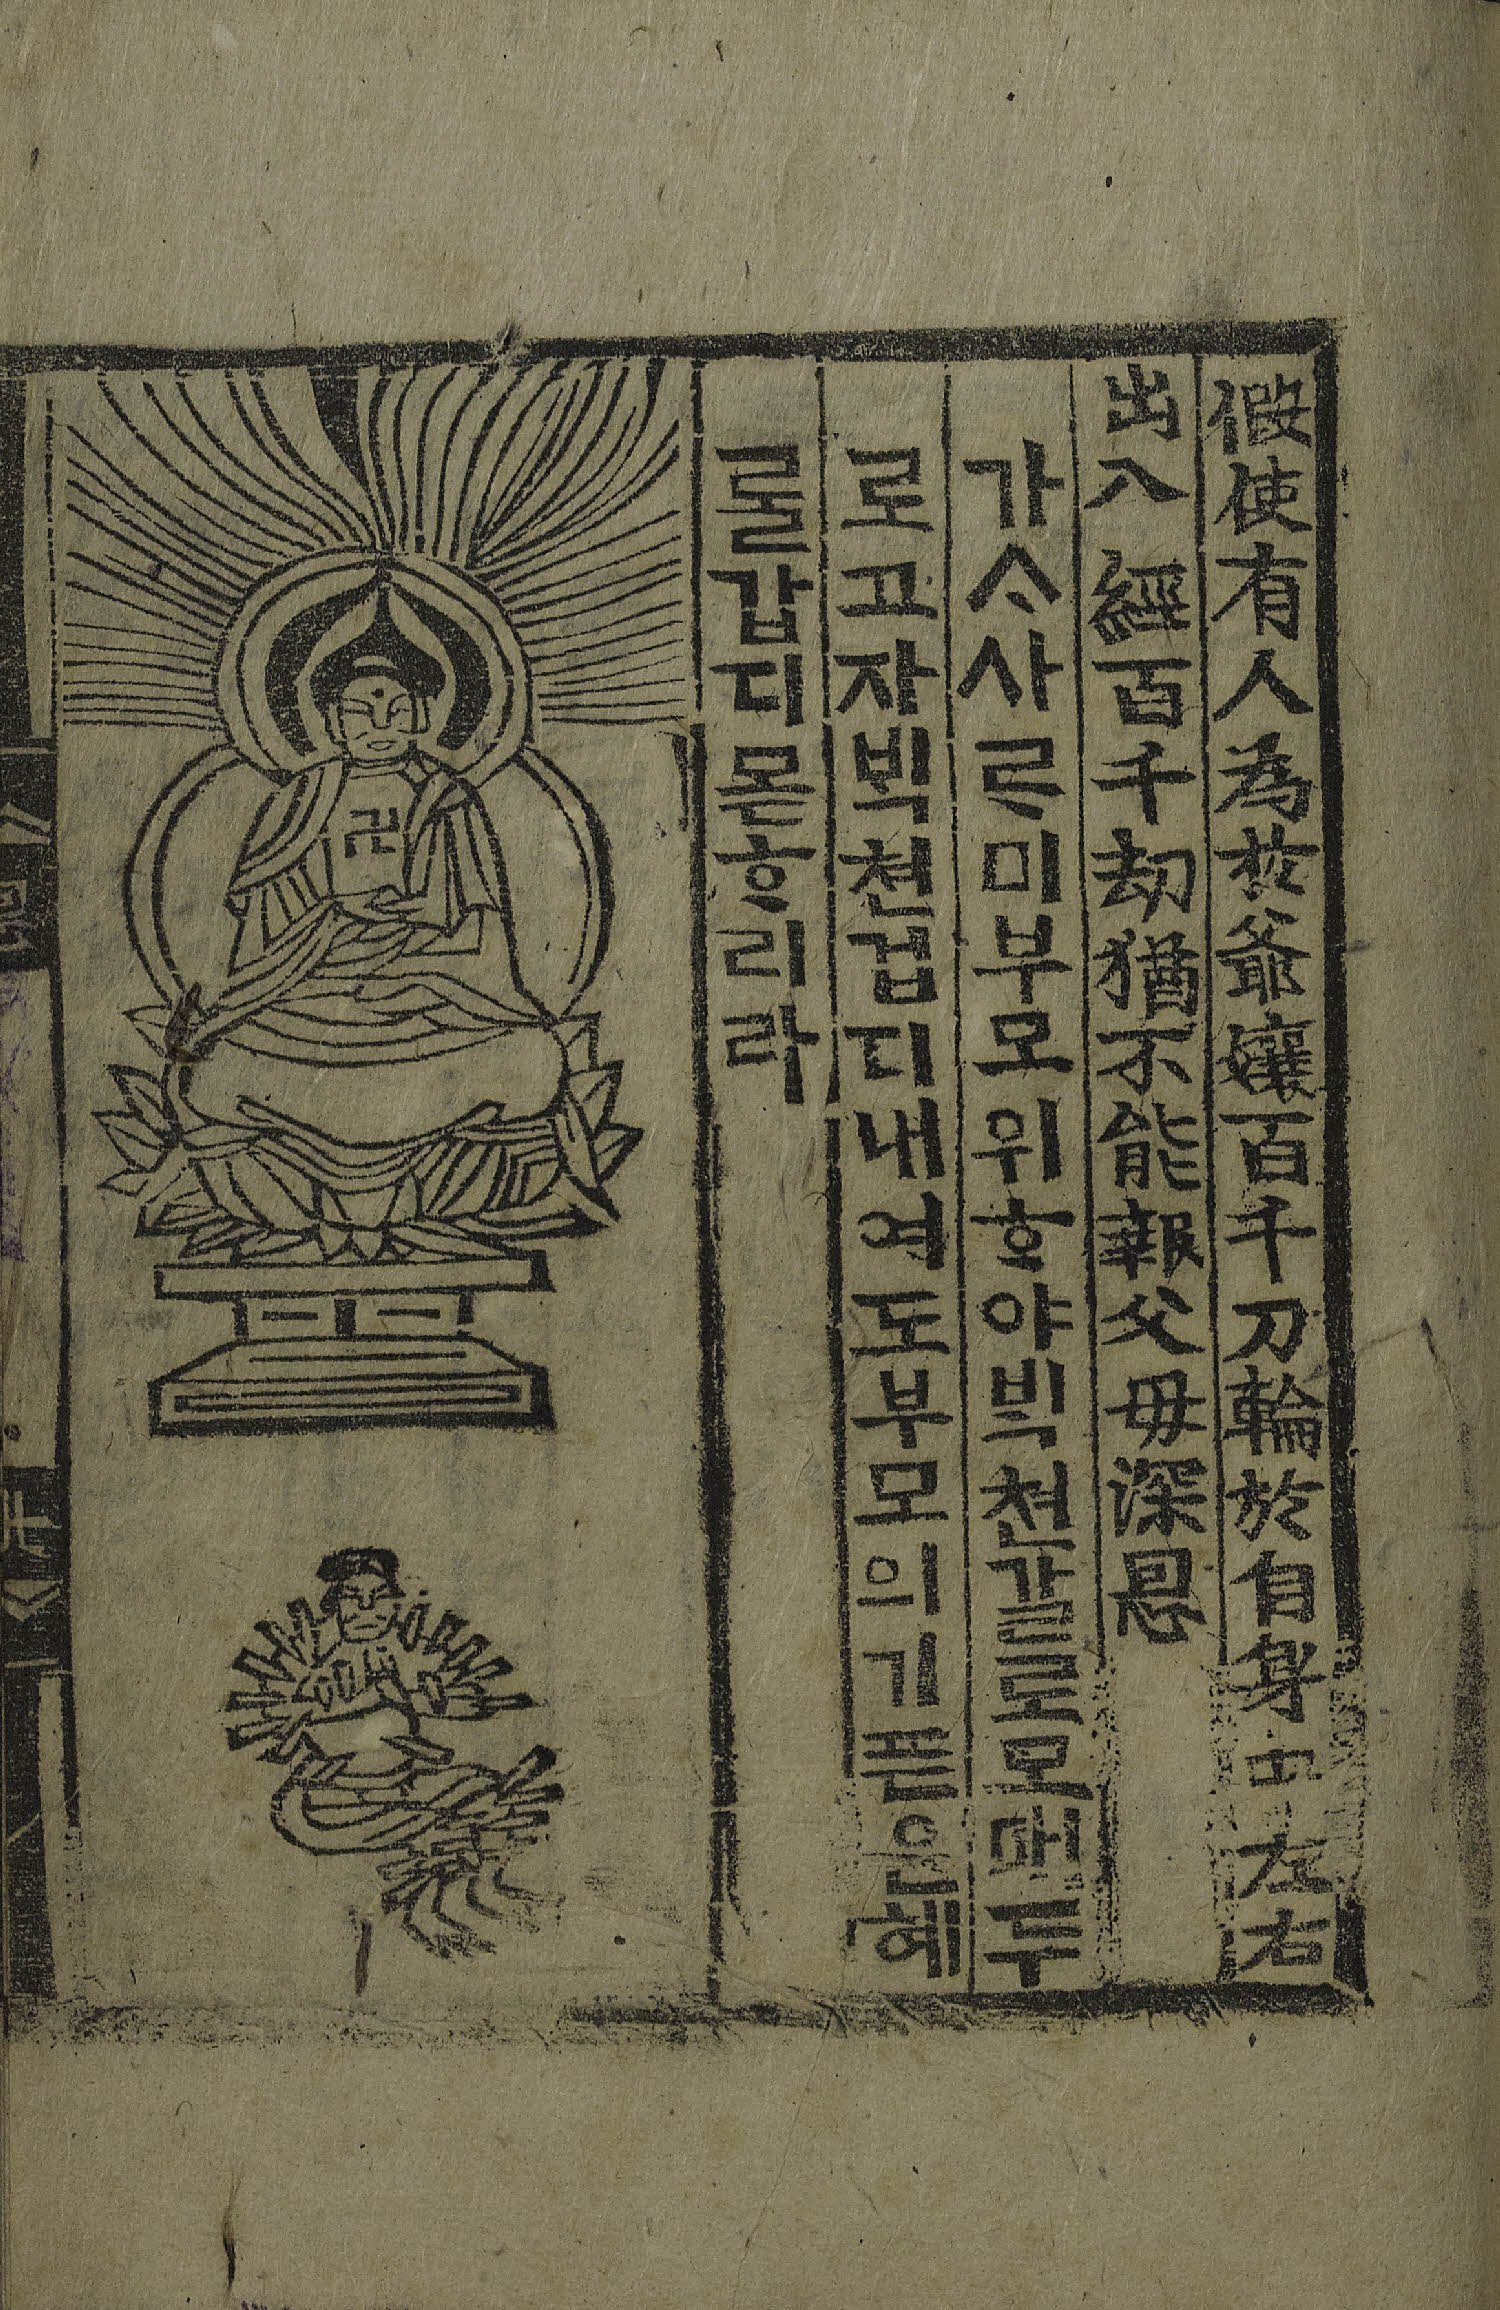 假使有人為於爺孃百千刀輪於自身中左右
出入經百千劫猶不能報父母深恩
가ᄉᆞ사ᄅᆞ미부모위ᄒᆞ야ᄇᆡᆨ쳔갈로모매두
로고자ᄇᆡᆨ쳔겁디내여도부모의기픈은혜
룰갑디몯ᄒᆞ리라
卍